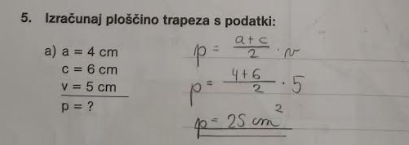 5. Izračunaj ploščino trapeza s podatki:
a) a = 4 cm
c = 6 cm
v = 5 cm
p = ?
p = (a+c)/2 · v
p = (4+6)/2 · 5
p = 25 cm²